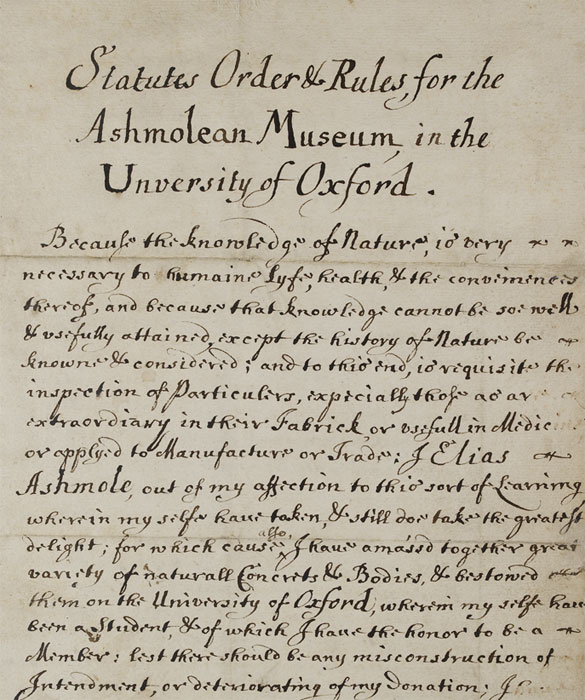 Statutes Order & Rules, for the
Ashmolean Museum, in the
Unversity of Oxford.
Because the knowledge of Nature, is very
necessary to humaine Lyfe, health, & the conveniences
thereof, and because that knowledge cannot be soe well
& usefully attained, except the history of Nature be
knowne & considered; and to this end, is requisite the
inspection of Particulers, expecially those as are
extraordinary in their Fabrick, or usefull in Medicin
or applyed to Manufacture or Trade: I Elias
Ashmole, out of my affection to this sort of Learning
wherein my selfe have taken, & still doe take the greatest
delight; for which cause also, I have amass'd together great
variety of naturall Concrets & Bodies, & bestowed
them on the University of Oxford, wherein my selfe have
been a Student, & of which I have the honor to be a
Member: lest there should be any misconstruction of
Intendment, or deteriorating of my donation; I